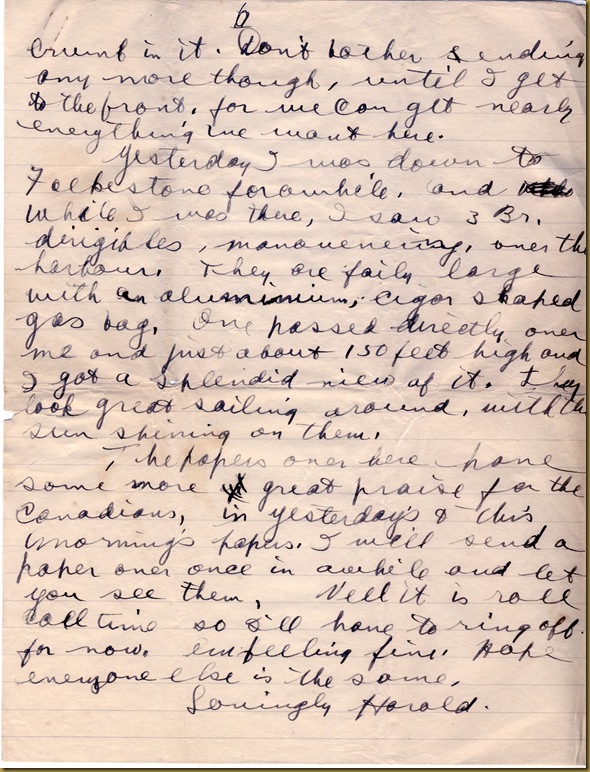 6
crumb in it. Don't bother sending
any more though, until I get
to the front, for we can get nearly
everything we want here.
Yesterday I was down to
Folkestone for awhile, and
while I was there, I saw 3 Br.
dirigibles, manouvening, over the
harbour. They are faily large
with an aluminium, cigar shaped
gas bag. One passed directly over
me and just about 150 feet high and
I got a splendid view of it. They
look great sailing around, with the
sun shining on them.
The papers over here have
some more great praise for the
Canadians, in yesterday's & this
morning's papers. I will send a
paper over once in awhile and let
you see them. Well it is roll
call time so I'll have to ring off
for now. em feeling fine. Hope
everyone else is the same.
Lovingly Harold.